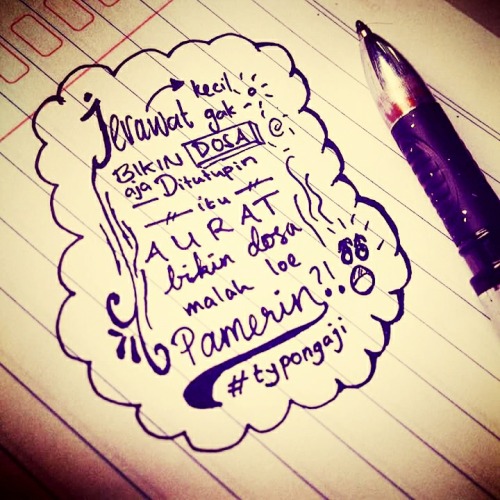 Jerawat kecil
gak
BIKIN DOSA
aja Ditutupin
itu
AURAT
bikin dosa
malah loe
Pamerin?!
#typongaji